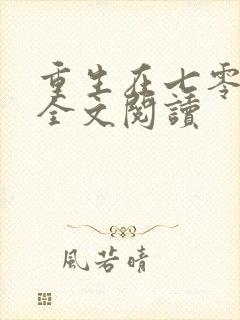 重生在七零
全文閱讀
風若晴